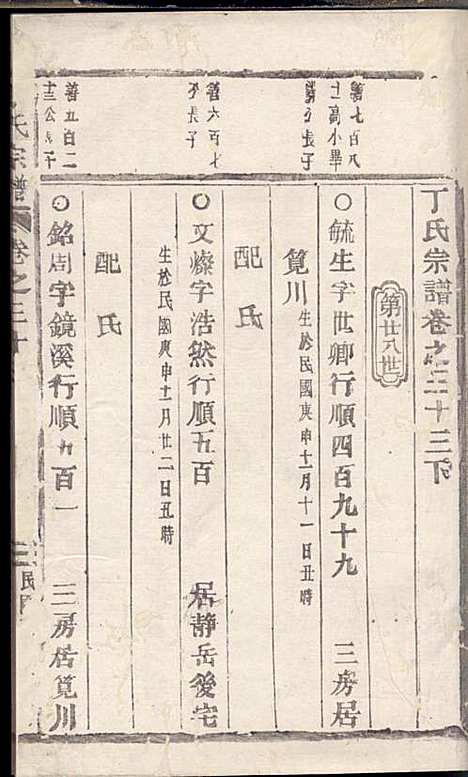 丁氏宗譜卷之二十三下
第廿八世
善七百八
十二高小畢
善久長子
○毓生字世卿行順四百九十九 三房居
筧川 生於民國庚申十一月十一日丑時
配氏
善六百七
子長子
○文燦字浩然行順五百 居靜岳後宅
生於民國庚申十一月廿二日丑時
配氏
善五百二
十三公
○銘周字鏡溪行順五百一 三房居筧川
氏宗譜 卷之三十